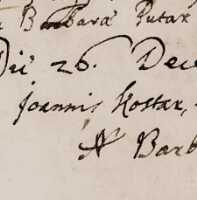 Barbaræ Putar
Die 26. Dec
Joannis Kostar,
Barb